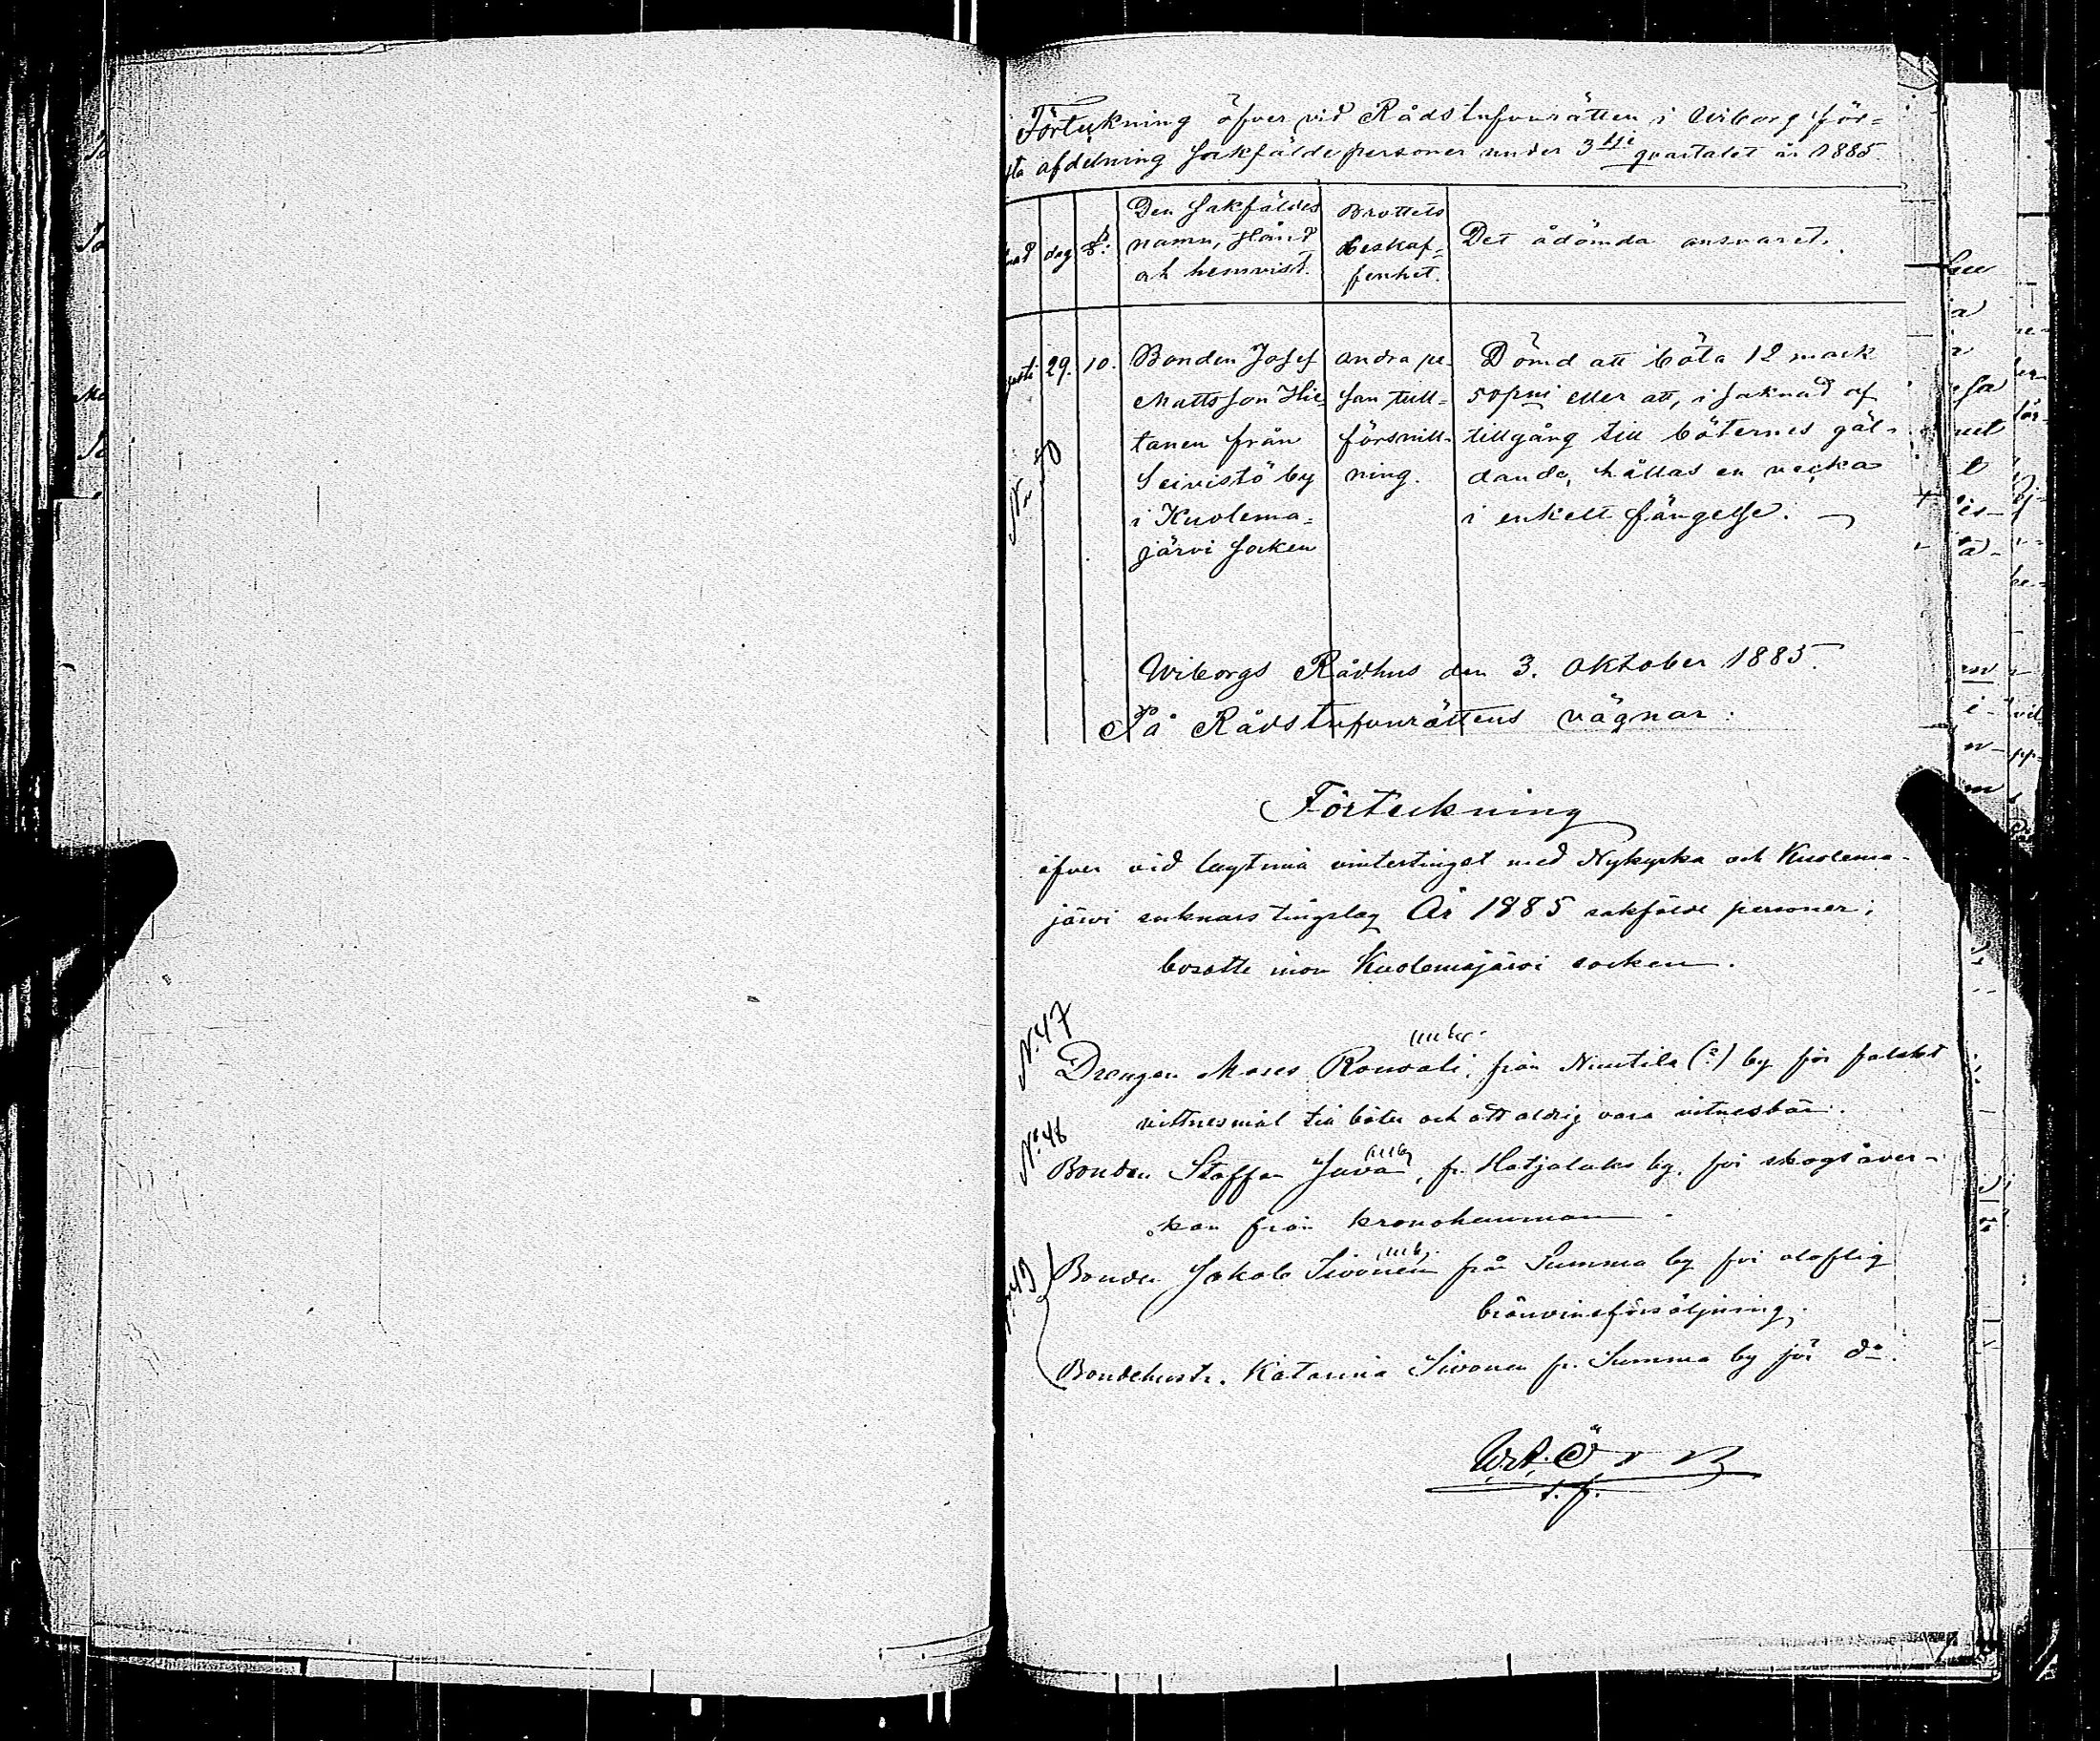 Förteckning öfver vid Rådstufvurätten i Wiborg för=
sta afdelning sakfälde personer under 3dje qvartalet år 1885.
nad dag §: Den sakfäldes namn, stånd och hemvist. Brottets beskaf=fenhet. Det ådömda ansvaret.
gusti 29. 10. Bonden Josef andra re- Dömd att böta 12 mark
Mattsson Hie= san tull= 50 pni eller att, i saknad af
tanen från försnill- tillgång till böternes gäl-
Seivistö by ning. dande, hållas en vecka
i Kuolema= i enkelt fängelse.
järvi socken
No 50
Wiborgs Rådhus den 3. Oktober 1885.
På Rådstufvurättens vägnar:
Förteckning
öfver vid lagtima vintertinget med Nykyrka och Kuolema-
järvi socknars tingslag År 1885 sakfälde personer,
bosatte inom Kuolemajärvi socken.
N. 47
Drengen Moses Rouvali, från Nuutila (?) by för falskt
vittnesmål till böter och att aldrig vara vitnesbär.
No 48
Bonden Staffan Juva, fr. Hatjalaks by, för skogsåver-
kan från kronohemman
Bonden Jakob Sivonen från Summa by för olaflig
bränvinsförsäljning,
Bondehustr. Katarina Sivonen fr. Summa by för do.